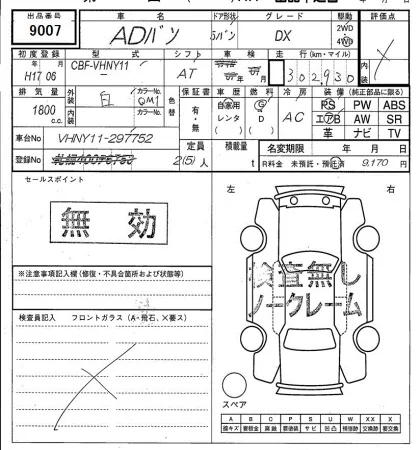 出品番号 車名 ドア形状 グレード 駆動 評価点
9007 ADバン 5バン DX 2WD 4WD
初度登録 型式 シフト 車検 走行(km・マイル) 内装
年 月 H17 06 CBF-VHNY11- AT 302,930
排気量 外装 カラーNo. 色替 保証書 車歴 燃料 冷房 装備(純正部品に限る)
1800 c.c. 白 QM1 有・無 自家用 G AC PS PW ABS
内装 カラーNo. レンタ D エアB AW SR
( ) ( ) 革 ナビ TV
車台No VHNY11-297752 定員 積載量 名変期限 年 月 日
登録No 2(5)人 t R料金 未預託・預託済 9,170 円
セールスポイント 左 右
無効
検査無し
ノークレーム
※注意事項記入欄(修復・不具合箇所および状態等)
検査員記入 フロントガラス(A・飛石、×要ス)
スペア
A B C P S U W X XX